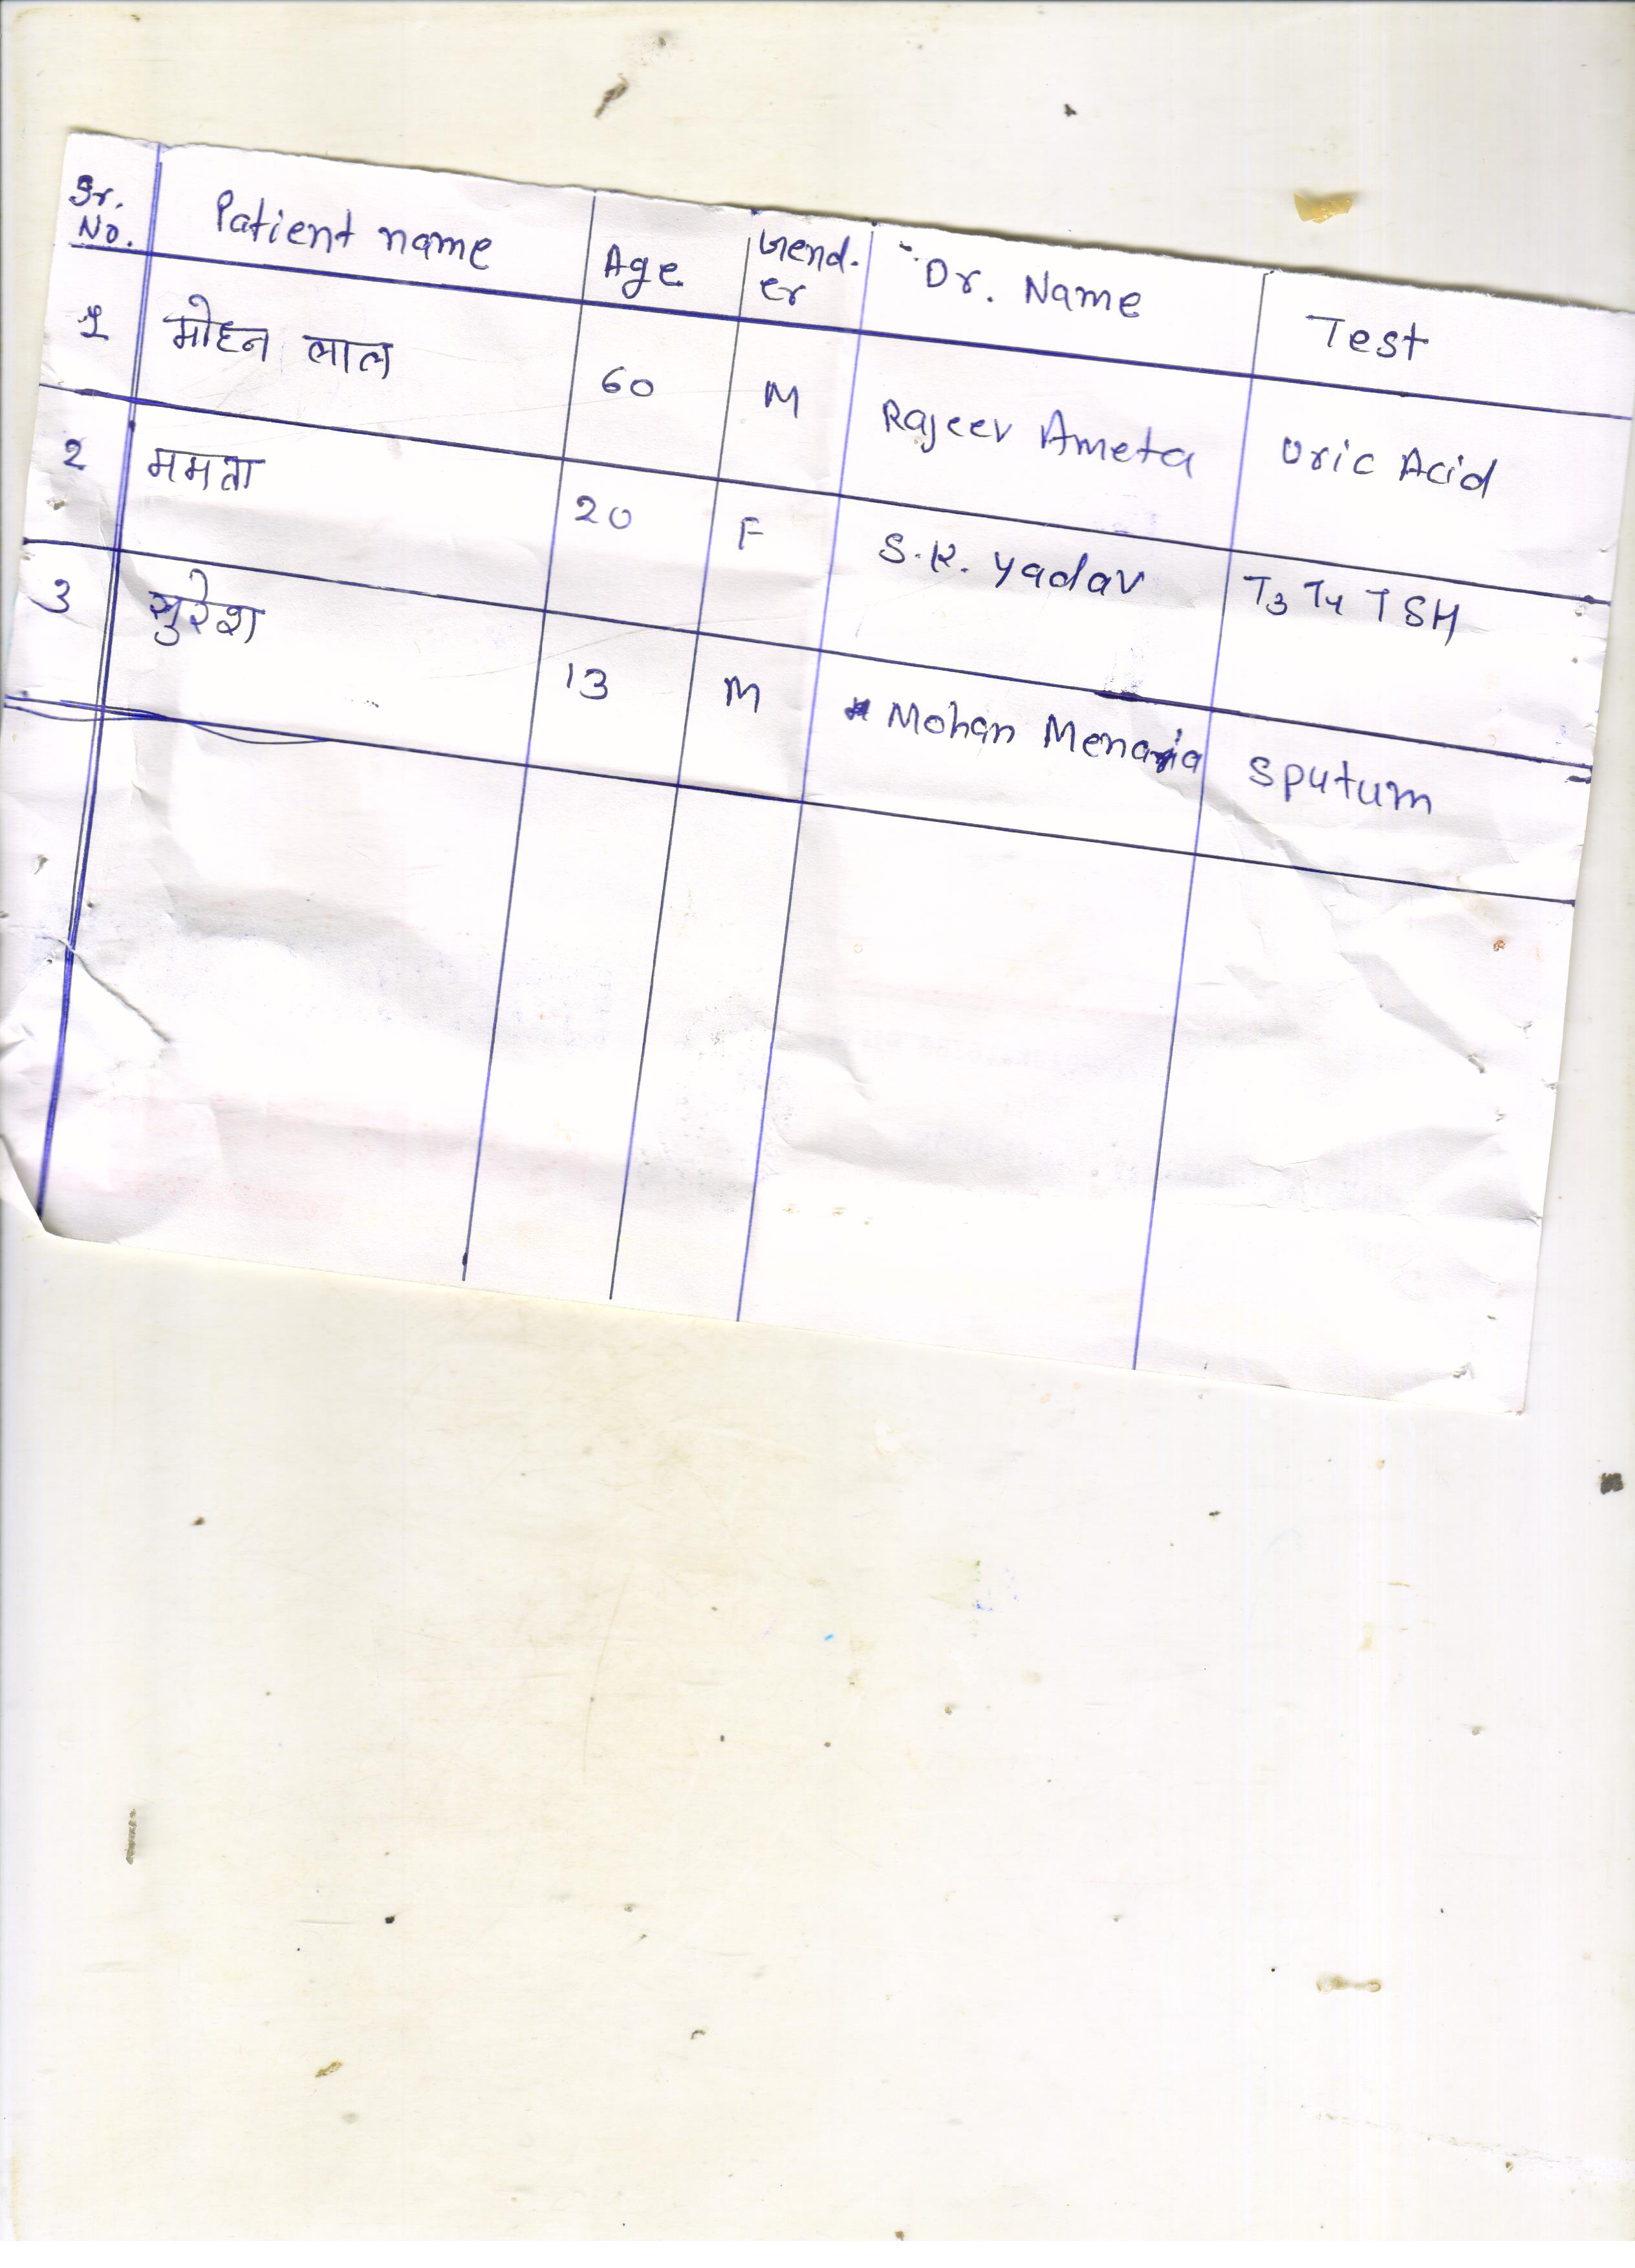 Sr. No. Patient name Age Gend. er Dr. Name Test
1 मोहन लाल 60 M Rajeev Ameta Uric Acid
2 ममता 20 F S.K. Yadav T3 T4 TSH
3 सुरेश 13 M Mohan Menaria Sputum